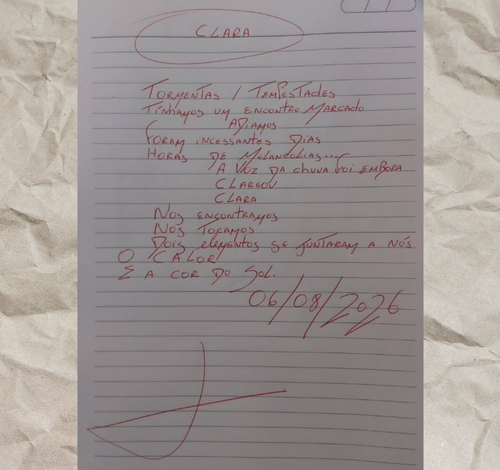 CLARA
TORMENTAS / TEMPESTADES
TÍNHAMOS UM ENCONTRO MARCADO
ADIAMOS
FORAM INCESSANTES DIAS
HORAS DE MELANCOLIAS....
A VOZ DA CHUVA FOI EMBORA
CLAREOU
CLARA
NOS ENCONTRAMOS
NOS TOCAMOS
DOIS ELEMENTOS SE JUNTARAM A NÓS
O CALOR
E A COR DO SOL.
06/08/2026